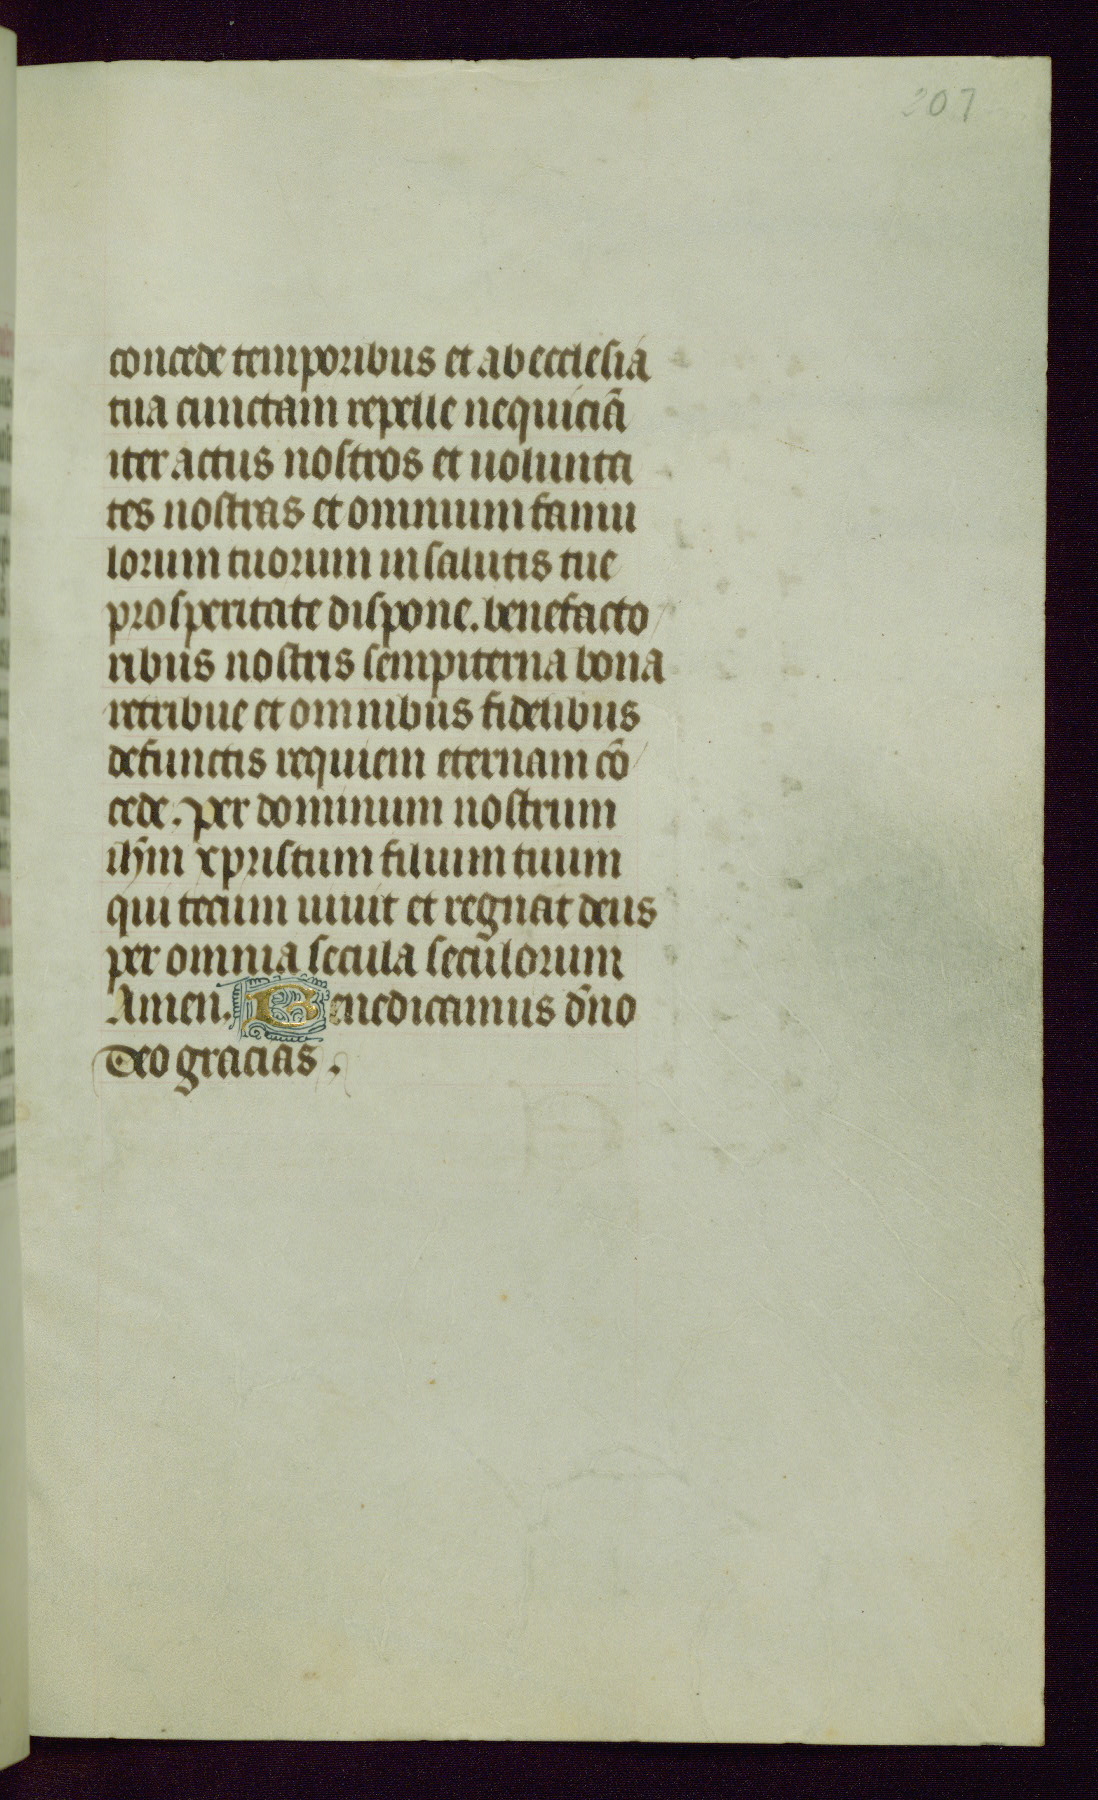 207
concede temporibus et ab ecclesia
tua cunctam repelle nequiciā
iter actus nostros et uolunta
tes nostras et omnium famu
lorum tuorum in salutis tue
prosperitate dispone. benefacto
ribus nostris sempiterna bona
retribue et omnibus fidelibus
defunctis requiem eternam cō
cede. Per dominum nostrum
ihm̄ xpristum filium tuum
qui tecum uiuit et regnat deus
per omnia secula seculorum
Amen. Benedicamus dn̄o
Deo gracias.